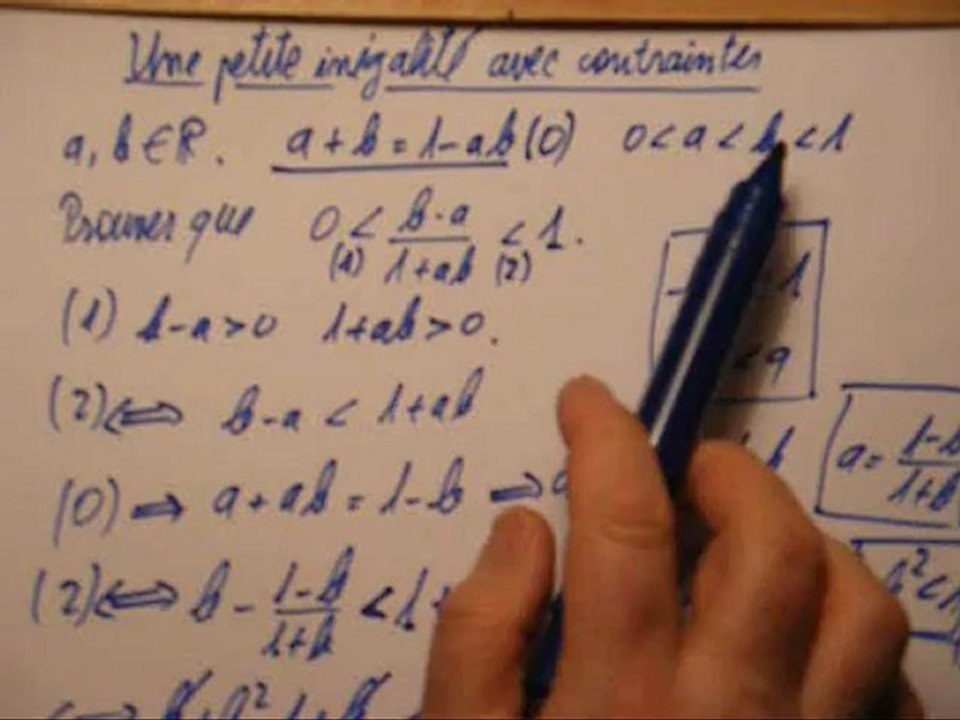 Une petite inégalité avec contraintes
a, b ∈ ℝ. a + b = 1 - ab (0) 0 < a < b < 1
Prouver que 0 < (1) \frac{b - a}{1 + ab} < (2) 1.
(1) b - a > 0 1 + ab > 0.
(2) ⟺ b - a < 1 + ab
(0) ⟹ a + ab = 1 - b ⟹ a
a = \frac{1 - b}{1 + b}
(2) ⟺ b - \frac{1 - b}{1 + b} < 1 +
b² < 1